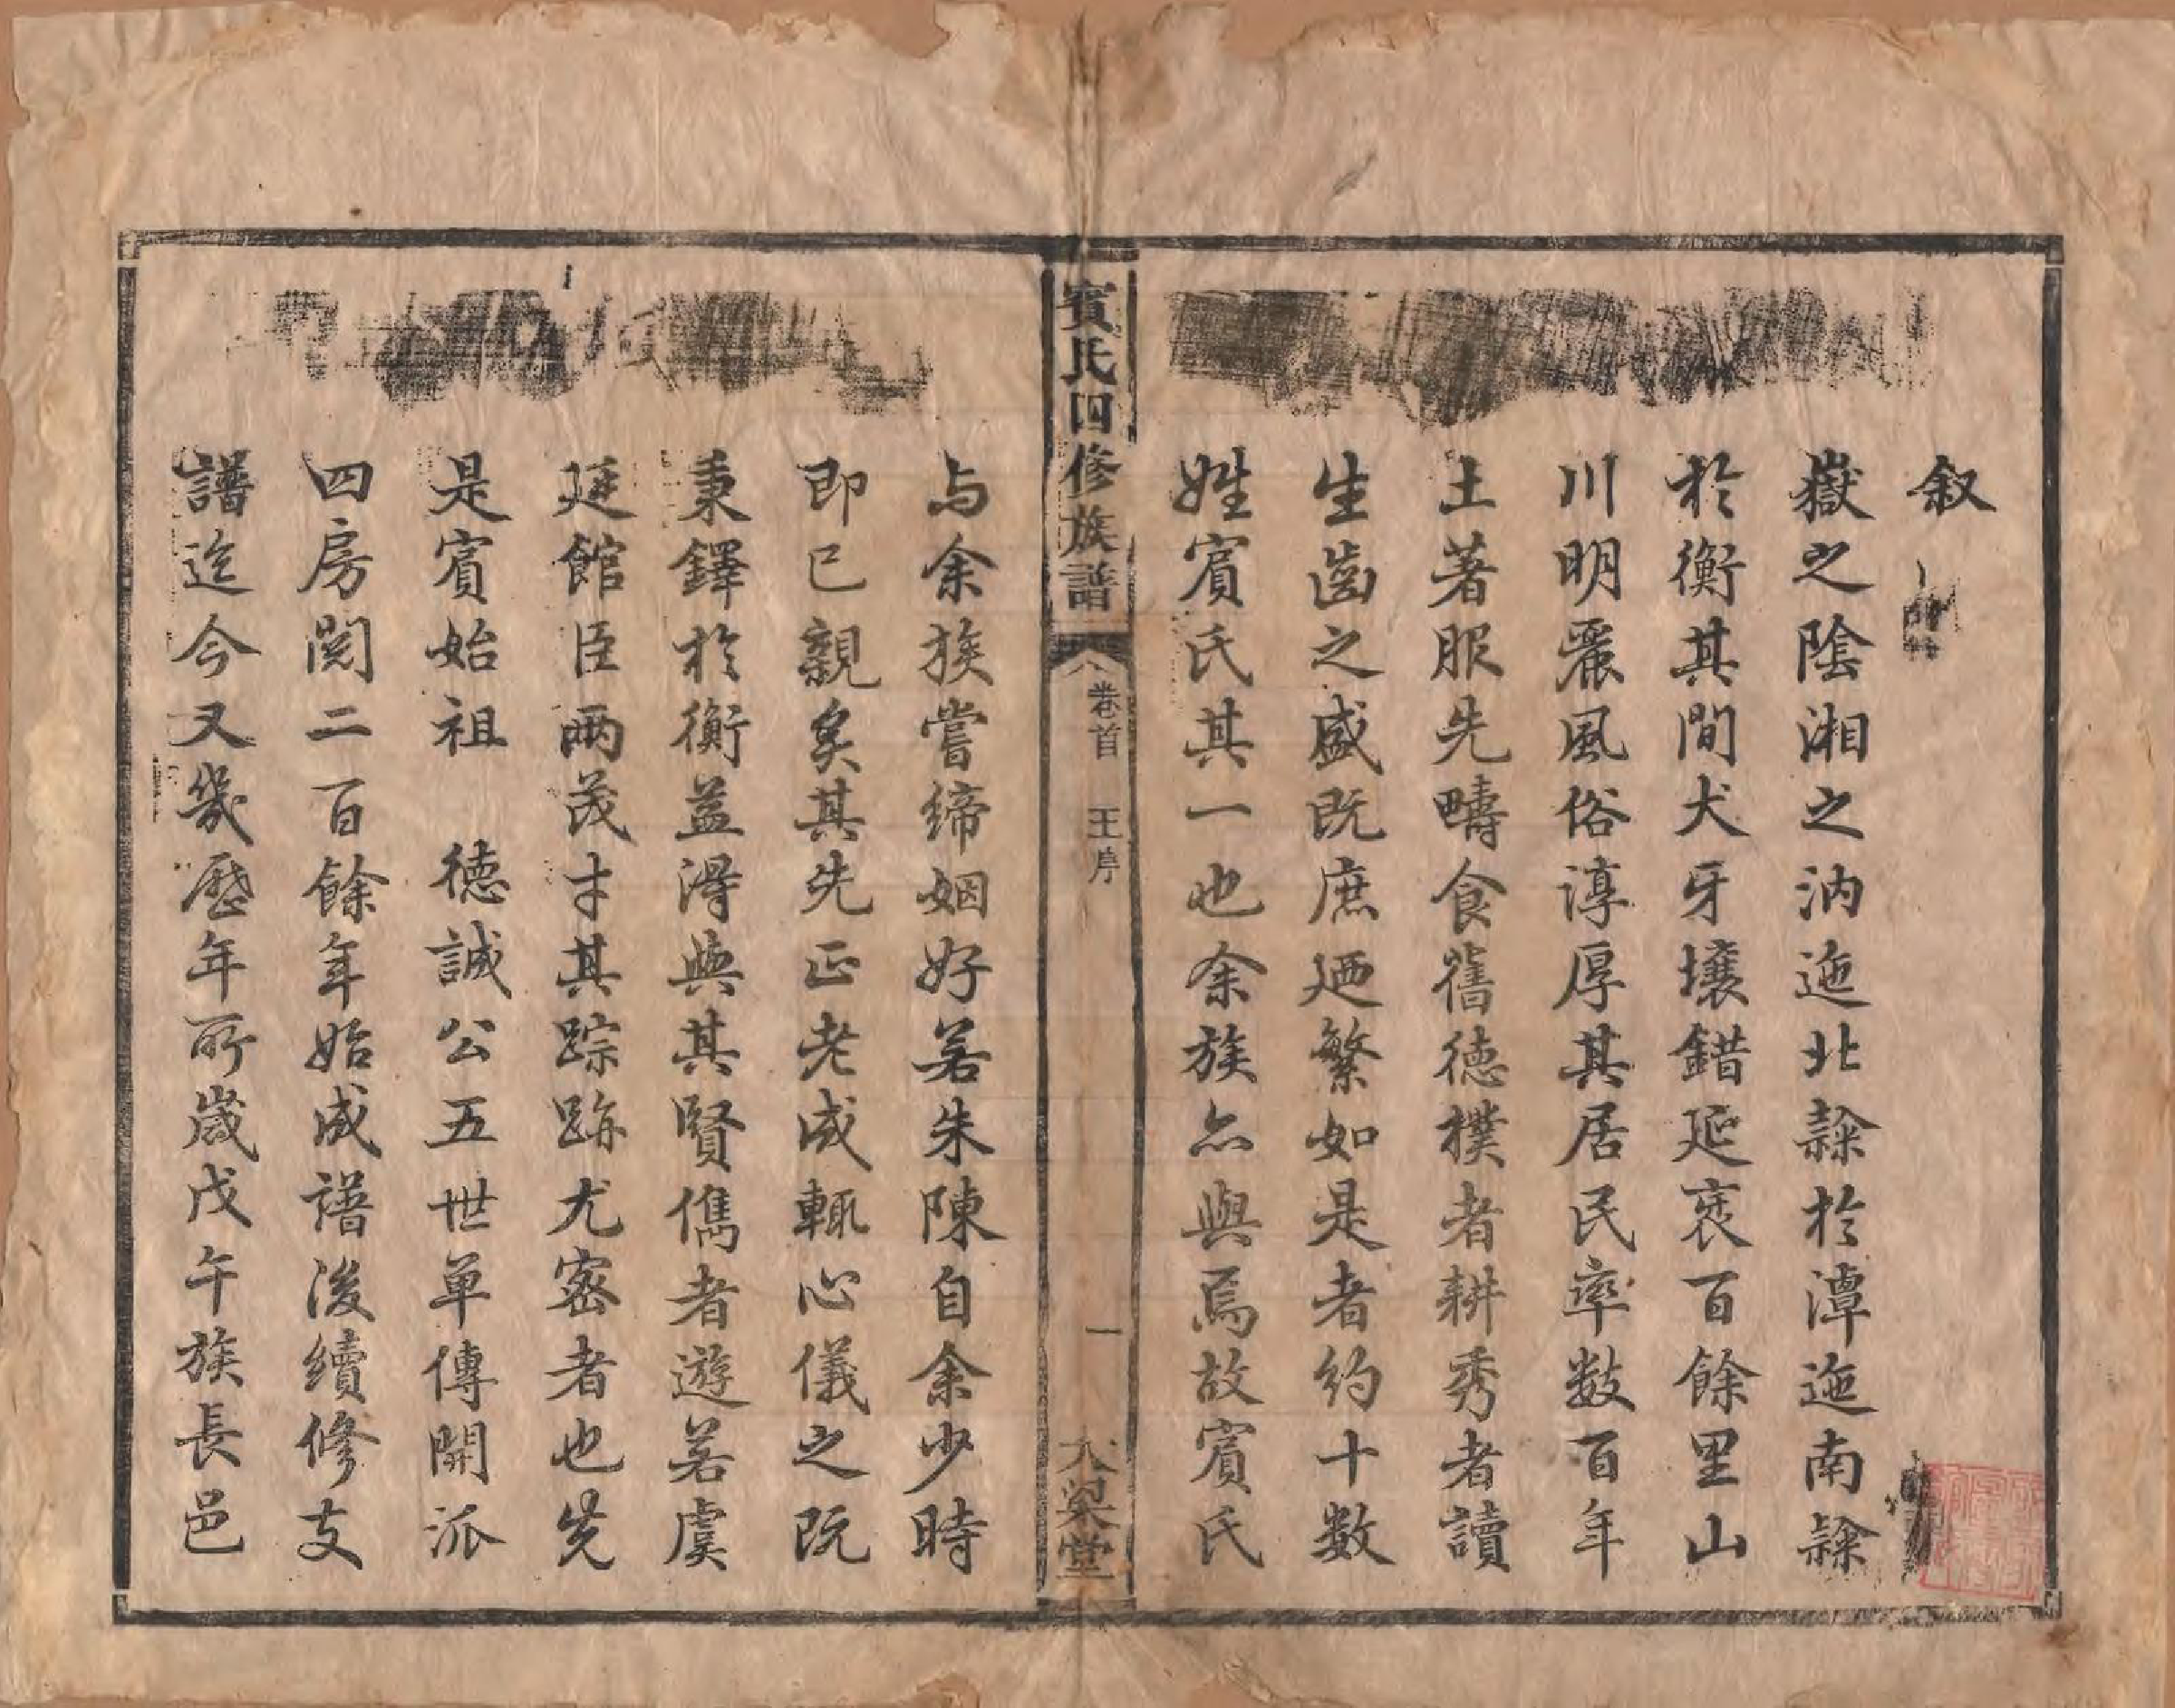 叙
嶽之陰湘之汭迤北隸於潭迤南隸
於衡其間犬牙壤錯延袤百餘里山
川明麗風俗淳厚其居民率数百年
土著服先疇食舊德樸者耕秀者讀
生齒之盛既庶廼繁如是者約十数
姓賓氏其一也余族亦與焉故賓氏
賓氏四修族譜
卷首 王序
一
大梁堂
与余族嘗締姻好若朱陳自余少時
即已親炙其先正老成輒心儀之既
秉鐸於衡益得與其賢儁者遊若虞
廷館臣兩茂才其踪跡尤密者也先
是賓始祖 德誠公五世單傳開派
四房閲二百餘年始成譜後續修支
譜迄今又幾歷年所歲戊午族長邑